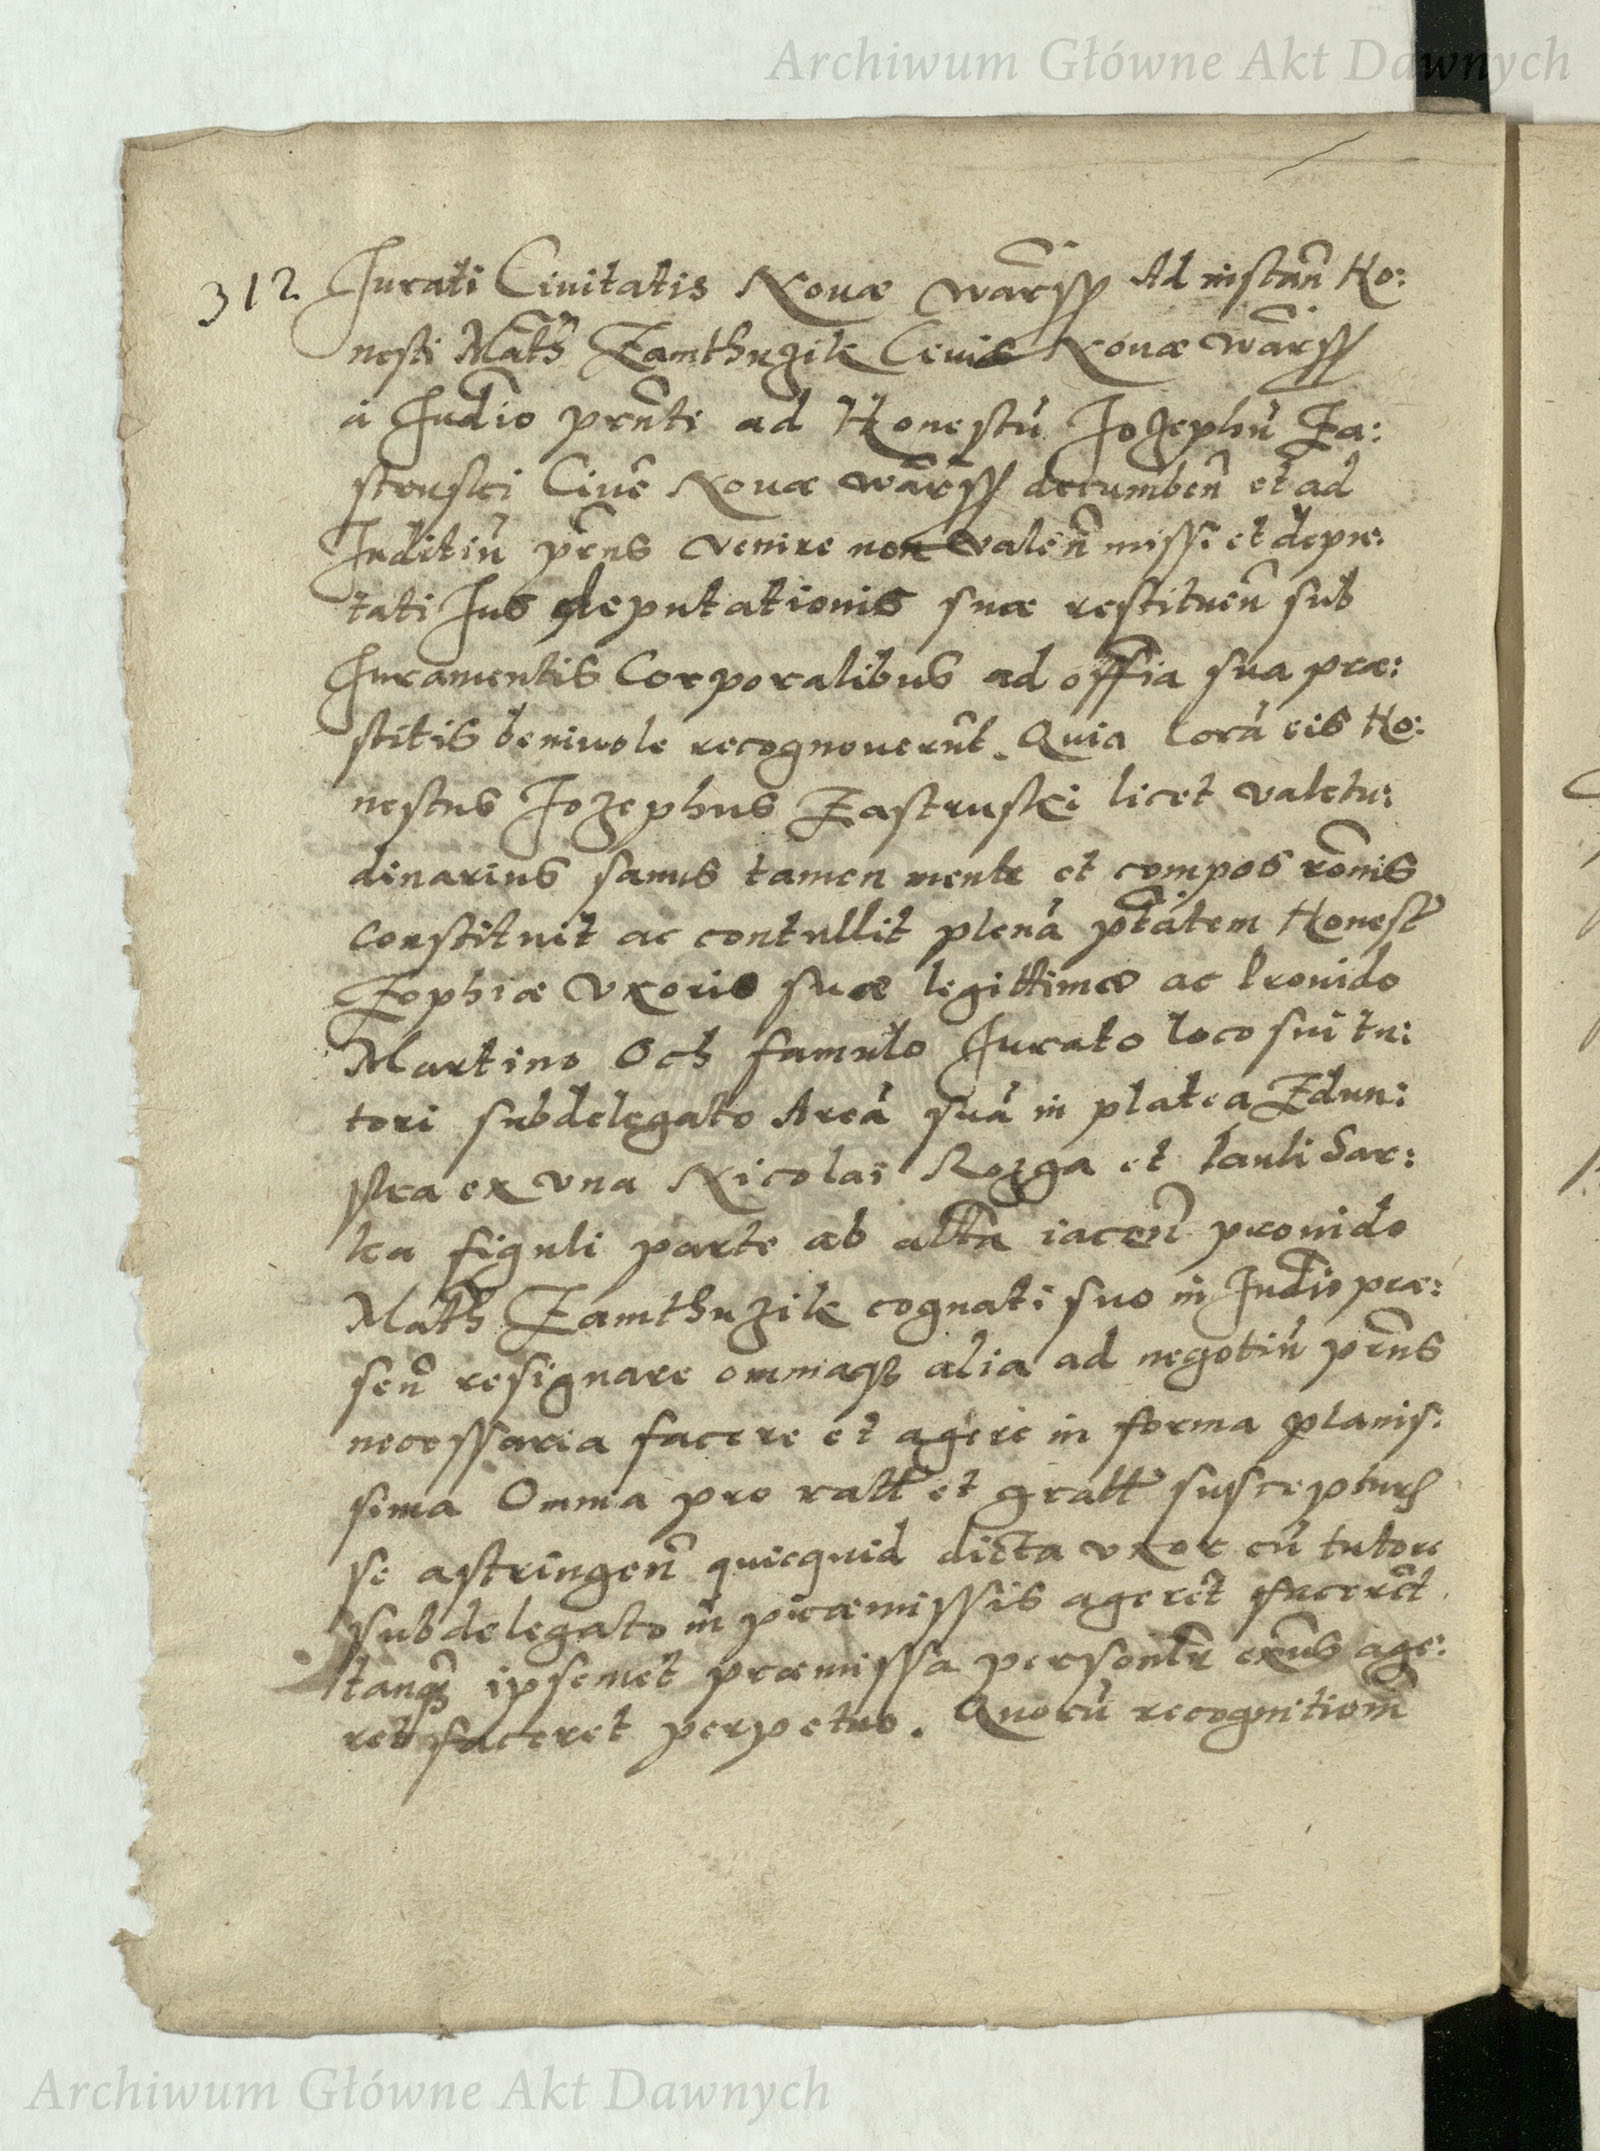 Archiwum Główne Akt Dawnych
312. Jurati Ciuitatis Nouæ Warss Ad instan Ho:
nesti Math Zamthuzik Ciuis Nouæ Warss
a Judio prnti ad Honestu Jozephu Za:
struski Ciue Nouæ Warss decumben et ad
Juditiu prns venire non valen missi et depu:
tati Jus deputationis suæ restituen sub
Juramentis Corporalibus ad offia sua præ:
stitis beniuole recognouerut. Quia Cora eis Ho:
nestus Jozephus Zastruski licet valetu:
dinarius sanus tamen mente et compos ronis
Constituit ac contullit plena ptatem Honest
Zophiæ Vxoris suæ legittimæ ac Prouido
Martino Och famulo Jurato loco sui tu:
tori subdelegato Area sua in platea Zdun:
ska ex vna Nicolai Rozga et Pauli Sar:
ka figuli parte ab altra iacen prouido
Math Zamthuzik cognati suo in Judio præ:
sen resignare omniaq alia ad negotiu prns
necessaria facere et agere in forma planis:
sima Omnia pro ratt et gratt suscept
se astringen quicquid dicta vxor cu tutore
subdelegato in præmissis ageret faceret
tanq ipsemet præmissa age:
ret faceret perpetuo. Quoru recognitiom
Archiwum Główne Akt Dawnych